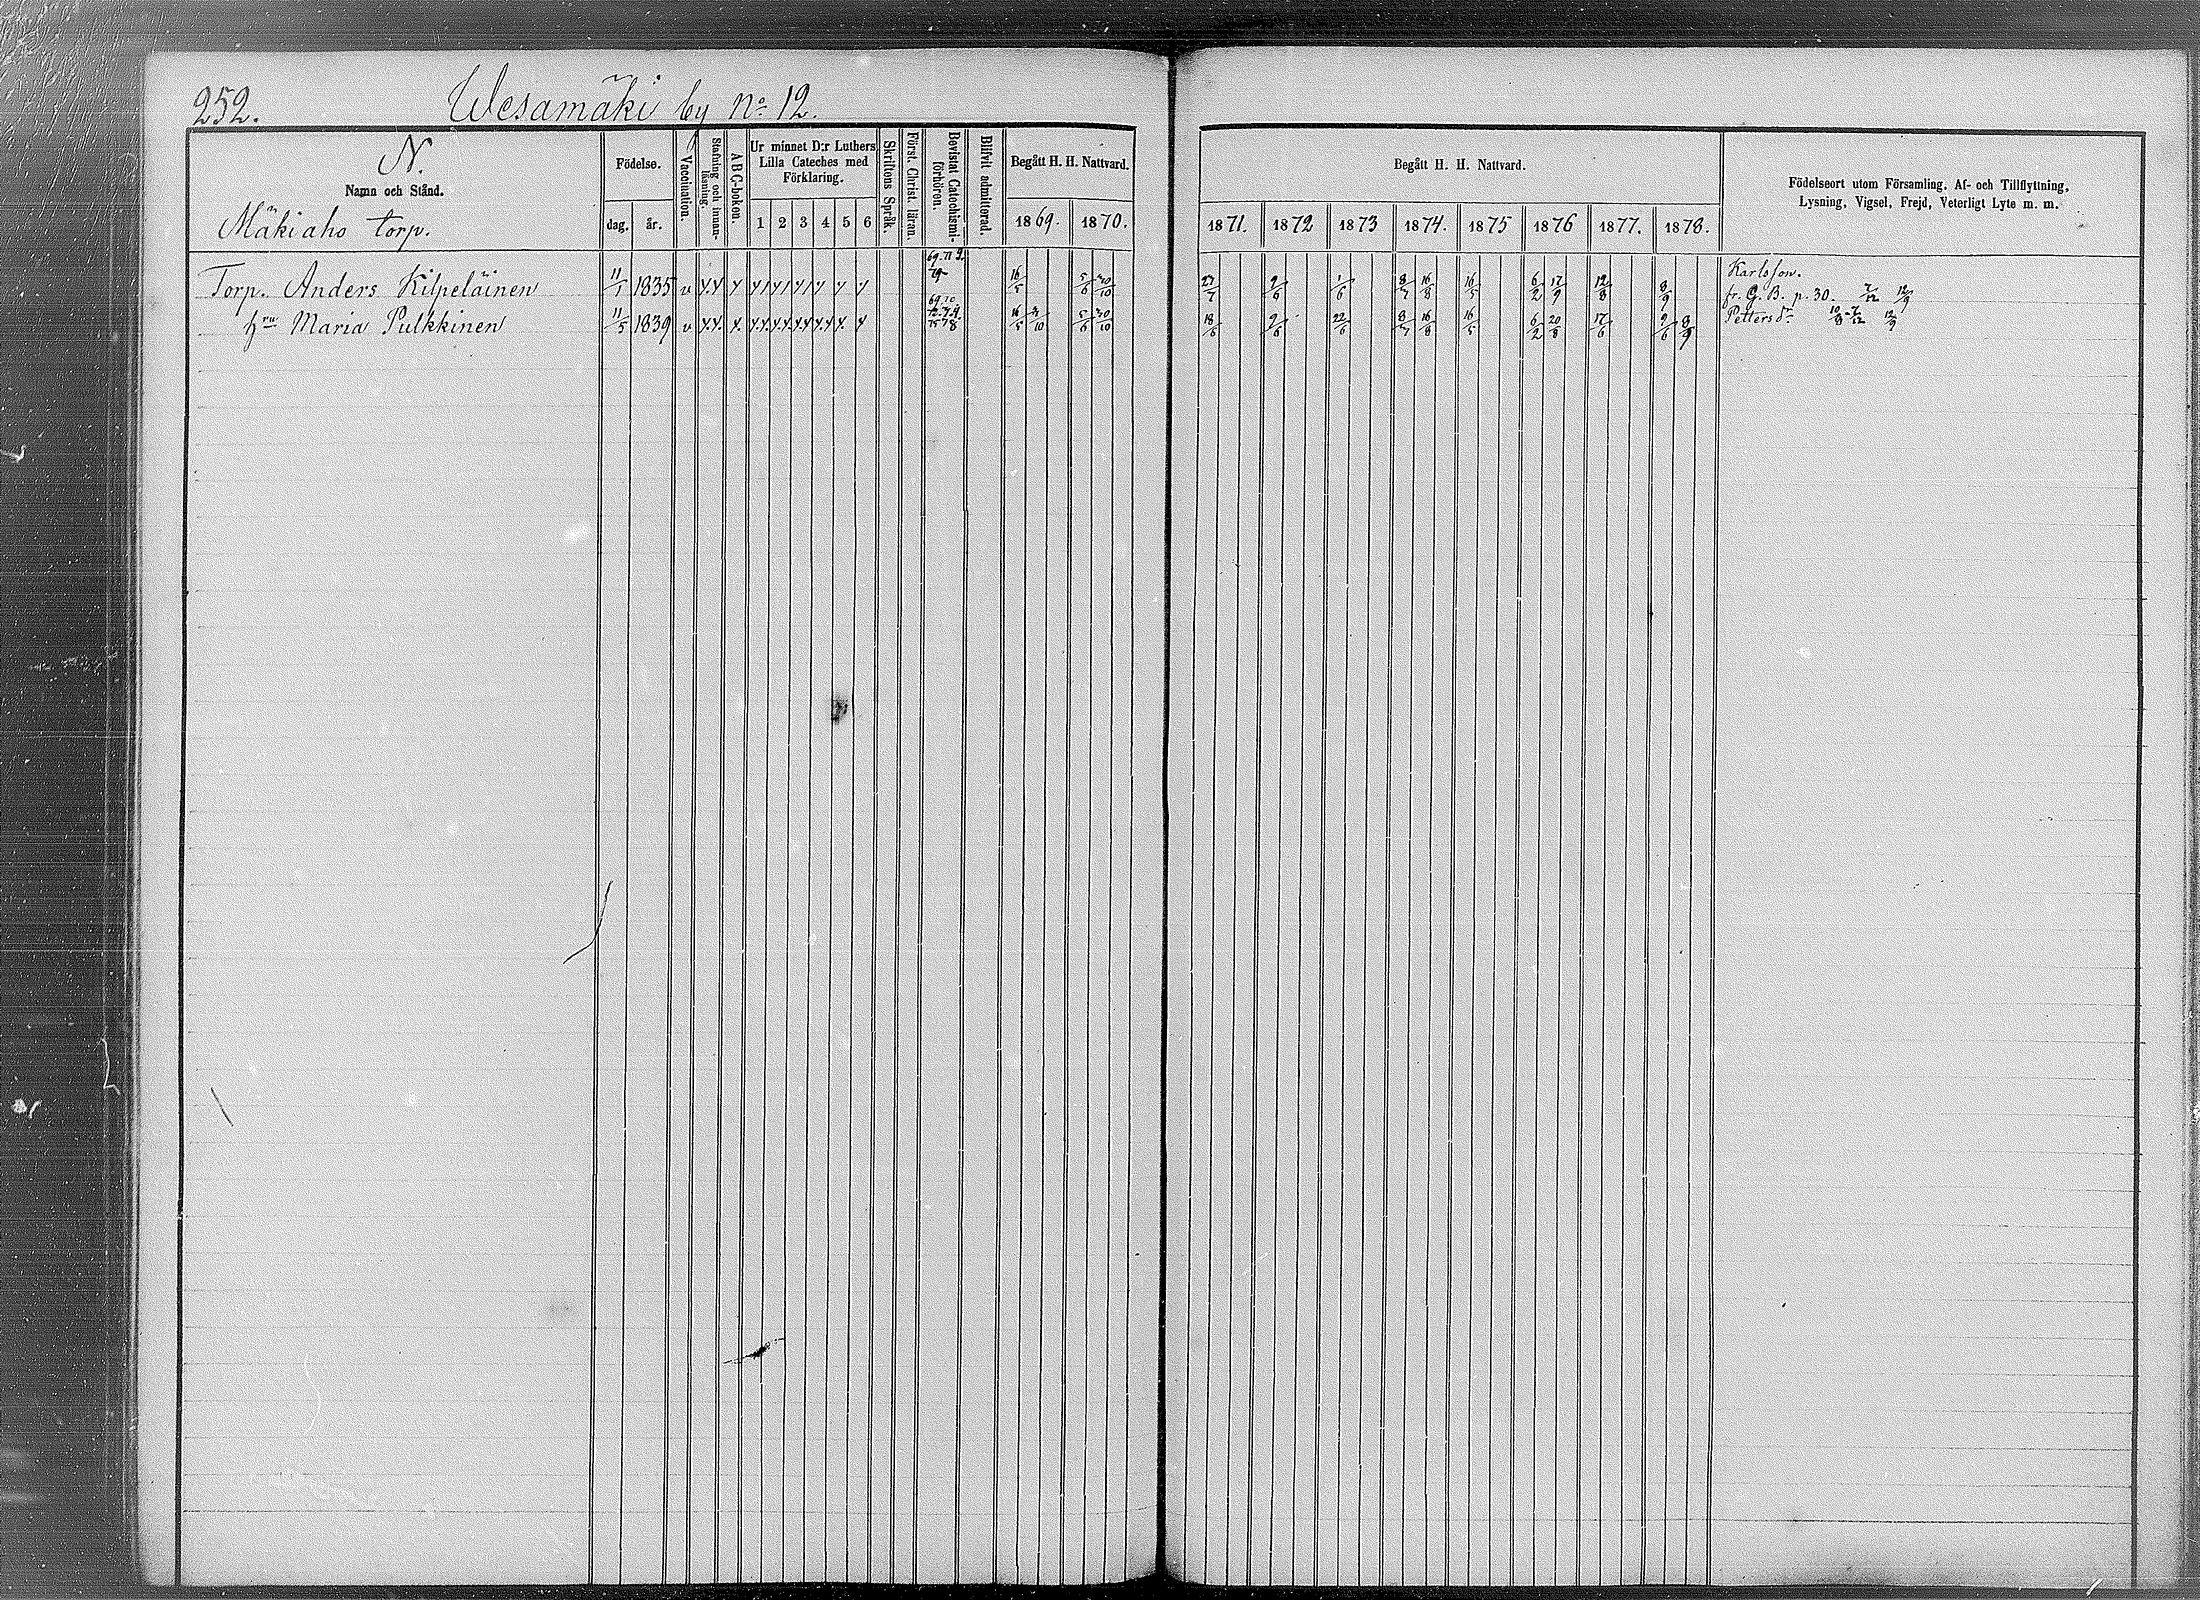 252. Wesamäki by No 12.
N.
Namn och Stånd.
Mäkiaho torp.
Födelse.
dag. år.
Vaccination.
Stafning och innanläsning.
ABC-boken.
Ur minnet D:r Luthers Lilla Cateches med Förklaring.
1 2 3 4 5 6
Skriftens Språk.
Först. Christ. läran.
Bevistat Catechismiförhören.
Blifvit admitterad.
Begått H. H. Nattvard.
1869. 1870.
Begått H. H. Nattvard.
1871. 1872 1873 1874. 1875 1876 1877. 1878.
Födelseort utom Församling, Af- och Tillflyttning,
Lysning, Vigsel, Frejd, Veterligt Lyte m. m.
Karlsson.
Torp. Anders Kilpeläinen 11/1 1835 v 16/5 5/6 30/10 27/7 2/6 1/6 8/7 16/8 16/5 6/2 17/9 12/8 8/9 fr. G. B. p. 30. 7/12 12/9
hru Maria Pulkkinen 11/5 1839 v 16/5 3/10 5/6 30/10 18/6 2/6 22/6 8/7 16/8 16/5 6/2 20/8 17/6 9/6 8/9 Petters dr 10/8 7/12 12/9